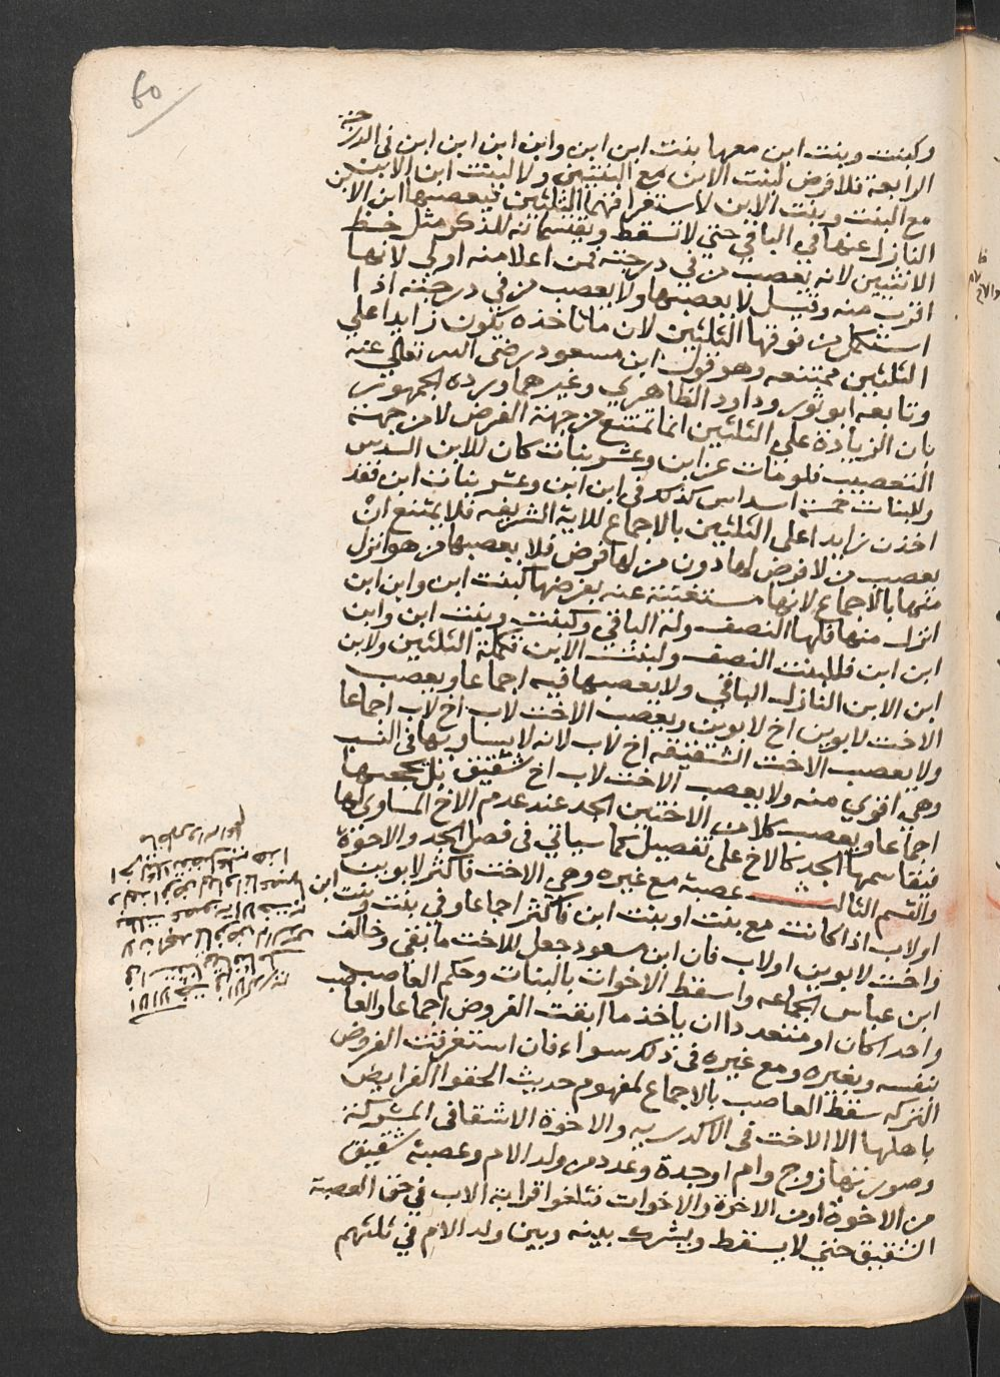 60
وكبنت وبنت ابن معها بنت ابن ابن وابن ابن ابن ابن في الدرجة
الرابعة فلا فرض لبنت الابن مع البنتين ولا لبنت ابن الابن
مع البنت وبنت الابن لاستغراقهما الثلثين فيعصبها ابن الابن
النازل عنها في الباقي حتى لا تسقط ويقتسمانه للذكر مثل حظ
الانثيين لانه يعصب من في درجته فمن اعلا منه اولى لانها
اقرب منه وقيل لا يعصبها ولا يعصب من في درجته اذا
استكمل من فوقها الثلثين لان ما تاخذه يكون زايدا على
الثلثين ممتنعه وهو قول ابن مسعود رضى الله تعالى عنه
وتابعه ابو ثور وداود الظاهري وغيرهما ورده الجمهور
بان الزيادة على الثلثين انما تمتنع من جهة الفرض لا من جهة
التعصيب فلو مات عن ابن وعشر بنات كان للابن السدس
وللبنات خمسة اسداس كذلك في ابن ابن وعشر بنات ابن فقد
اخذن زايدا على الثلثين بالاجماع للاية الشريفه فلا يمتنع ان
يعصب من لا فرض لها دون من لها فرض فلا يعصبها من هو انزل
منها بالاجماع لانها مستغنية عنه بفرضها كبنت ابن وابن ابن
انزل منها فلها النصف وله الباقي وكبنت وبنت ابن وابن
ابن ابن فللبنت النصف ولبنت الابن تكملة الثلثين ولابن
ابن الابن النازل الباقي ولا يعصبها فيه اجماعا ويعصب
الاخت لابوين اخ لابوين ويعصب الاخت لاب اخ لاب اجماعا
ولا يعصب الاخت الشقيقه اخ لاب لانه لا يساويها في النسب
وهي اقوي منه ولا يعصب الاخت لاب اخ شقيق بل يحجبها
اجماعا ويعصب كلا من الاختين الجد عند عدم الاخ المساوي لها
فيقاسمها الجد كالاخ على تفصيل كما سياتي في فصل الجد والاخوة
والقسم الثالث عصبة مع غيره وهي الاخت فاكثر لابوين
او لاب اذا كانت مع بنت او بنت ابن فاكثر اجماعا وفي بنت وبنت ابن
واخت لابوين او لاب فان ابن مسعود جعل للاخت ما بقى وخالف
ابن عباس الجماعه واسقط الاخوات بالبنات وحكم العاصب
واحدا كان او متعددا ان ياخذ ما ابقت الفروض اجماعا والعاصب
بنفسه وبغيره ومع غيره في ذلك سواء فان استغرقت الفروض
التركه سقط العاصب بالاجماع لمفهوم حديث الحقوا الفرايض
باهلها الا الاخت في الاكدريه والاخوة الاشقا في المشركة
وصورتها زوج وام او جدة وعدد من ولد الام وعصبة شقيق
من الاخوة او من الاخوة والاخوات فتلغوا قرابة الاب في حق العصبة
الشقيق حتى لا يسقط ويشرك بينه وبين ولد الام في ثلثهم